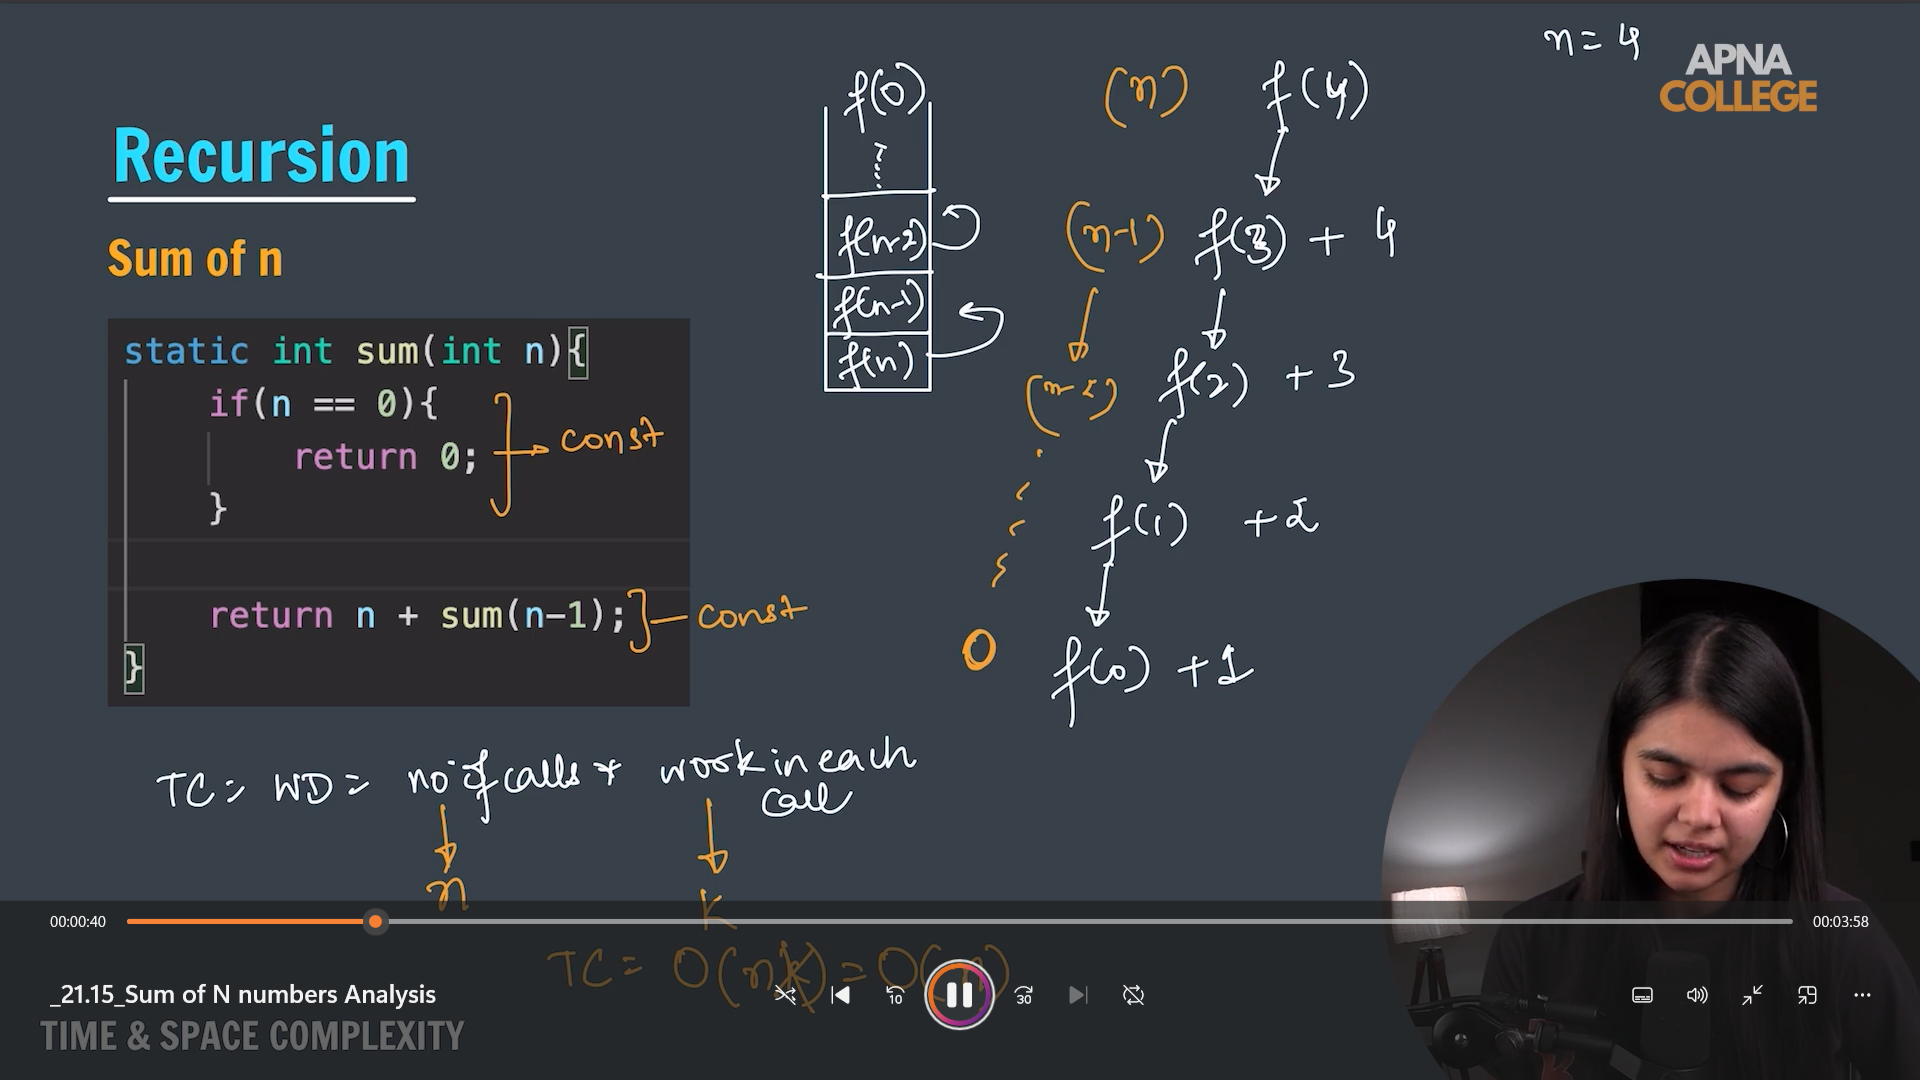 n = 4
APNA
COLLEGE
Recursion
Sum of n
static int sum(int n){
if(n == 0){
return 0;
}
return n + sum(n-1);
}
const
const
f(0)
f(n-2)
f(n-1)
f(n)
(n)
(n-1)
(n-2)
0
f(4)
f(3) + 4
f(2) + 3
f(1) + 2
f(0) + 1
TC = WD = no of calls * work in each
call
n
k
TC = O(nk) = O(n)
00:00:40
00:03:58
_21.15_Sum of N numbers Analysis
10
30
TIME & SPACE COMPLEXITY